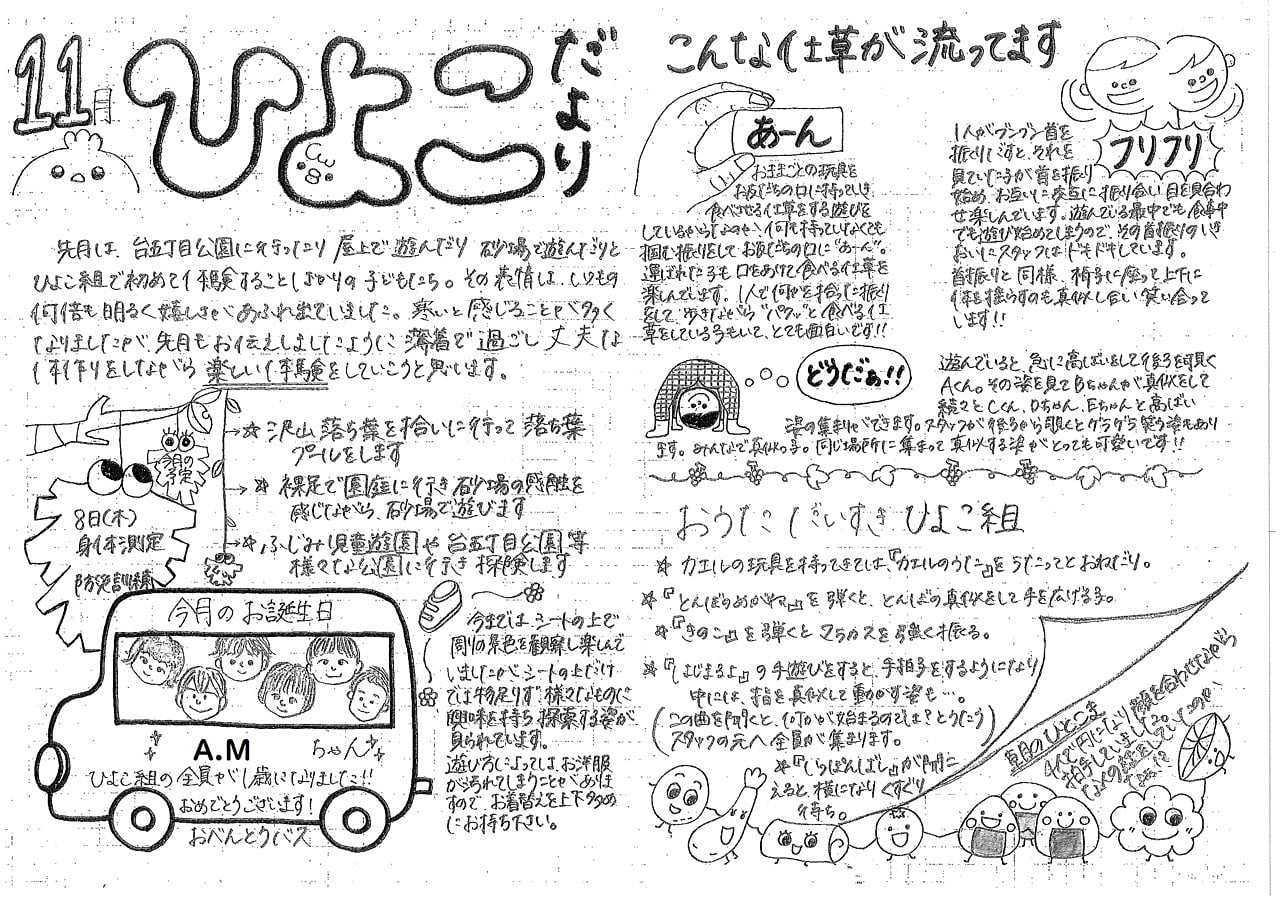 11月
ひよこ
だより
先月は、台五丁目公園に行ったり 屋上で遊んだり 砂場で遊んだりと
ひよこ組で初めて体験することばかりの子どもたち。その表情は、いつもの
何倍も明るく嬉しさがあふれ出ていました。寒いと感じることが多く
なりましたが、先月もお伝えしましたように 薄着で過ごし 丈夫な
体作りをしながら 楽しい体験をしていこうと思います。
今月の
予定
→☆ 沢山 落ち葉を拾いに行って 落ち葉
プールをします
→☆ 裸足で園庭に行き 砂場の感触を
感じながら、砂場で遊びます
→☆ ふじみ児童遊園や 台五丁目公園等
様々な公園に行き 探険します
8日(木)
身体測定
防災訓練
今月の お誕生日
A.M ちゃん
ひよこ組の 全員が1歳になりました!!
おめでとうございます!
おべんとうバス
今までは、シートの上で
周りの景色を観察し楽しんで
いましたが、シートの上だけ
では物足りず 様々なものに
興味を持ち 探索する姿が
見られています。
遊び方によっては、お洋服
が汚れてしまうことがありま
すので、お着替えを上下多め
にお持ち下さい。
こんな仕草が流ってます
あーん
おままごとの玩具を
お友だちの口に持っていき
食べさせる仕草をする遊びを
しているからなのか、何も持っていなくても
掴む振りをして お友だちの口に"あーん"。
運ばれた子も 口をあけて 食べる仕草を
楽しんでいます。1人で何かを拾った振り
をして、歩きながら"パクッ"と 食べる仕
草をしている子もいて、とても面白いです!!
フリフリ
1人がブンブン首を
振りだすと、それを
見ていた子が 首を振り
始め、お互いに交互に振り合い 目を見合わ
せ楽しんでいます。遊んでいる最中でも 食事中
でも遊び始めてしまうので、その首振りのいき
おいにスタッフは、ドキドキしています。
首振りと同様、椅子に座って上下に
体を揺らすのも真似し合い 笑い合って
います!!
どうだぁ!!
遊んでいると、急に高ばいをして 後ろを覗く
Aくん。その姿を見てBちゃんが真似をして
続々とCくん、Dちゃん、Eちゃんと高ばい
姿の集まりができます。スタッフが後ろから覗くとゲラゲラ笑う姿もあり
ます。みんなで真似っ子。同じ場所に集まって真似する姿がとっても可愛いです!!
おうた だいすき ひよこ組
☆ カエルの玩具を持ってきては、『カエルのうた♪』をうたってとおねだり。
☆『とんぼのめがね♪』を弾くと、とんぼの真似をして手を広げる子。
☆『きのこ♪』を弾くと マラカスを強く振る。
☆『はじまるよ♪』の手遊びをすると、手拍子をするようになり
中には、指を真似して動かす姿も…。
(この曲を聞くと、何かが始まるのでは?とうたう
スタッフの元へ 全員が集まります。)
☆『いっぽんばし♪』が聞こ
えると、横になり くすぐり
待ち。
朝のひとこま
4人で円になり 顔を合わせながら
拍手していました♪